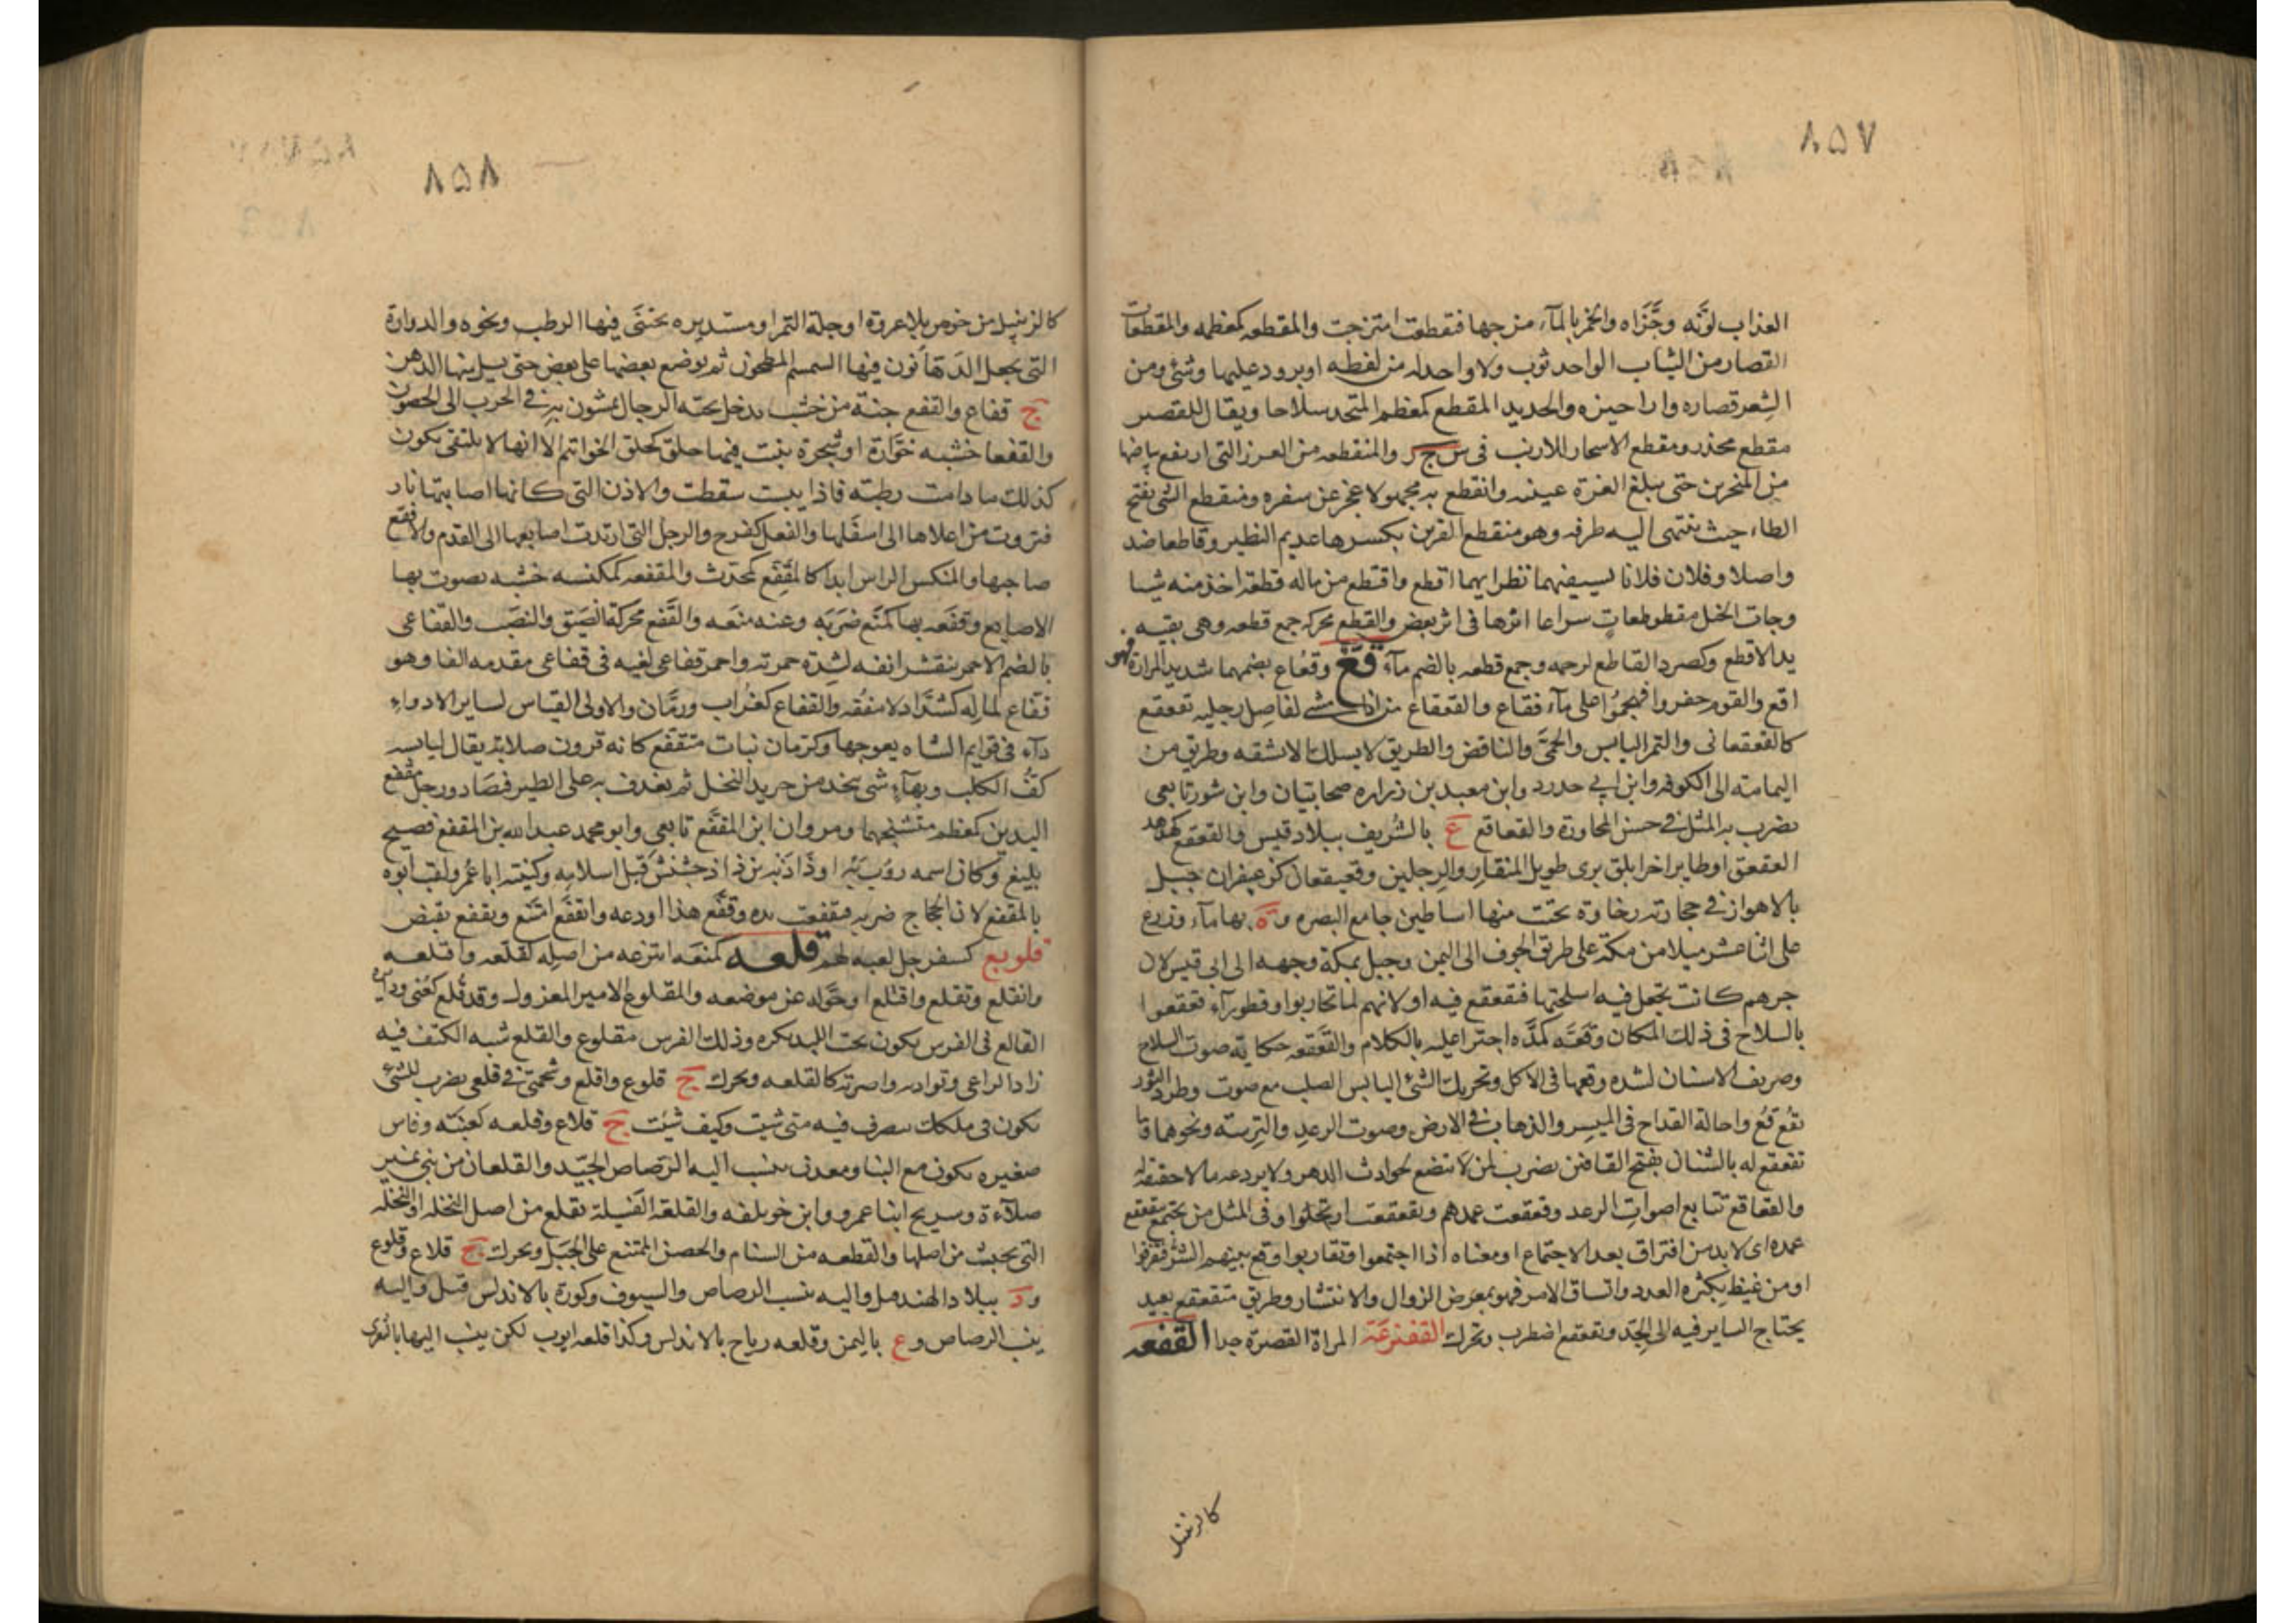 ٨٥٧
العذاب لوّنه وجَّزَاه والخمر بالمآء مزجها فتقطعت امتزجت والمقطعه كمعظمه والمقطعات
القصار من الثياب الواحد ثوب ولا واحد له من لفظه او برود عليها وشئ ومن
الشِعر قصاره واراجيزه والحديد المقطع كمعظم المتخذ سلاحا ويقال للقصير
مقطع مجذر ومقطع الاسحار للارنب فى س ج ر والمنقطعه من الغرر التى ارتفع بياضها
من المنخرين حتى يبلغ الغرة عينيه وانقطع به مجهولا عجز عن سفره ومنقطع الشئ بفتح
الطاء حيث ينتهى اليه طرفه وهو منقطع القرين بكسرها عديم النظير وقاطعا ضد
واصلا وفلان فلانا بسيفيهما نظرا ايهما اقطع واقتطع من ماله قطعة اخذ منه شيا
وجات الخيل مقطوطعاتٍ سراعا اثرها فى اثر بعض والقطع محركه جمع قطعه وهى بقيه
يد الاقطع وكصرد القاطع لرحمه وجمع قطعه بالضم مآء قُعّ وقُعاع بضمهما شديد المرارة فهو
اقع والقوم حفروا فهجموا على مآء قعاع والقعقاع من اذا مشى لمفاصل رجليه تقعقع
كالقعقعانى والتمر اليابس والحمّى والنافض والطريق لا يسلك الا بمشقه وطريق من
اليمامة الى الكوفه وابن ابى حدرد وابن معبد بن زراره صحابيان وابن شور تابعى
يضرب به المثل فى حسن المجاورة والقعاقع ع بالشريف ببلاد قيس والقعقع كهدهد
العقعق او طاير اخر ابلق برى طويل المنقار والرجلين وقعيقعان كزعيفران جبل
بالاهواز فى حجارته رخاوة نحتت منها اساطين جامع البصره وة بها مآء وزرع
على اثنا عشر ميلا من مكة على طريق الجوف الى اليمن وجبل بمكة وجهه الى ابى قبيس لان
جرهم كانت تجعل فيه اسلحتها فتقعقع فيه او لانهم لما تحاربوا وقطورآء قعقعوا
بالسلاح فى ذلك المكان وقعّه كمدّه اجترا عليه بالكلام والقعقعه حكاية صوت السلاح
وصريف الاسنان لشده وقعها فى الاكل وتحريك الشئ اليابس الصلب مع صوت وطرد الثور
بقُع قُع واجالة القداح فى الميسر والذهاب فى الارض وصوت الرعد والترسة ونحوهما وما
تقعقع له بالشنان بفتح القافين يضرب لمن لا يتضع لحوادث الدهر ولا يروعه ما لا حقيقة له
والقعاقع تتابع اصوات الرعد وقعقعت عمدهم وتقعقعت ارتحلوا وفى المثل من يجتمع يتقعقع
عمده اى لا بد من افتراق بعد الاجتماع او معناه اذا اجتمعوا وتقاربوا وقع بينهم الشر فتفرقوا
او من غيظ بكثره العدد واتساق الامر فهو بمعرض الزوال والانتشار وطريق متقعقع بعيد
يحتاج الساير فيه الى الجِدّ وتقعقع اضطرب وتحرك القفنزعَة المراة القصيرة جدا القفعه
كالزنبيل
٨٥٨
كالزنبيل من خوص بلا عروة او جلة التمر او مستديره يجتنى فيها الرطب ونحوه والدوارة
التى يجعل الدهّانون فيها السمسم المطحون ثم يوضع بعضها على بعض حتى يسيل منها الدهن
ج قفاع والقفع جنة من خشب يدخل تحته الرجال يمشون به فى الحرب الى الحصون
والقفعا خشبه خوّارة او شجرة ينبت فيها حلق كحلق الخواتم الا انها لا يلتقى يكون
كذلك ما دامت رطبة فاذا يبست سقطت والاذن التى كانها اصابتها نار
فتزوت من اعلاها الى اسفلها والفعل كفرح والرجل التى ارتدت اصابعها الى القدم والاقفع
صاحبها والمنكس الراس ابدا كالمقفّع كمحدّث والمقفعه كمكنسه خشبه يصوت بها
الاصابع وقفعه بها كمنع ضربه وعنه منعه والقفع محركة الضيق والنصَب والقفاعى
بالضم الاحمر ينقشر انفه لشدة حمرته واحمر قفاعى لغيه فى فقاعى مقدمه الفا وهو
قفاع لماله كشدّاد لا ينفقه والقفاع كغراب ورمّان والاولى القياس لساير الادواء
دآء فى قوايم الشاه يعوجها وكرمان نبات متقفع كانه قرون صلابة يقال ليابسه
كفّ الكلب وبهآء شى يتخذ من جريد النخل ثم يغدف به على الطير فتصاد ورجل مقفع
اليدين كمعظم متشنجهما ومروان ابن المقفّع تابعى وابو محمد عبد الله بن المقفع فصيح
بليغ وكان اسمه روزبه او ذاذبه بن ذاذجشنش قبل اسلامه وكنيته ابا عمرو لقب ابوه
بالمقفع لان الحجاج ضربه فتقفعت يده وقفّع هذا اوعه وانقفع امتنع وتقفع تقبض
قلوبع كسفرجل لعبه لهم قلعه كمنعه انتزعه من اصله كقلّعه واقتلعه
وانقلع وتقلع واقتلع او حوّله عن موضعه والمقلوع الامير المعزول وقد قُلع كعُنى ودائرة
القالع فى الفرس يكون تحت اللبد يكره وذلك الفرس مقلوع والقلع شبه الكنف فيه
زاد الراعى وتواديه واصرته كالقلعه ويحرك ج قلوع واقلع وشحمتى فى قلعى يضرب للشئ
يكون فى ملكك يتصرف فيه متى شيت وكيف شيت ج قلاع وقلعه كعنبة وفاس
صغيره يكون مع البنا ومعدن ينسب اليه الرَصاص الجيّد والقلعان من بنى نمير
صلآءة وسريح ابنا عمرو وابن خويلفه والقلعة الفسيلة تقلع من اصل النخله او النخله
التى تجتث من اصلها والقطعه من السنام والحصن الممتنع على الجبل ويحرك ج قلاع وقلوع
ود ببلاد الهند قيل واليه ينسب الرصاص والسيوف وكورة بالاندلس قيل واليه
ينسب الرصاص وع باليمن وقلعه رباح بالاندلس وكذا قلعه ايوب لكن ينسب اليها بالثغرى